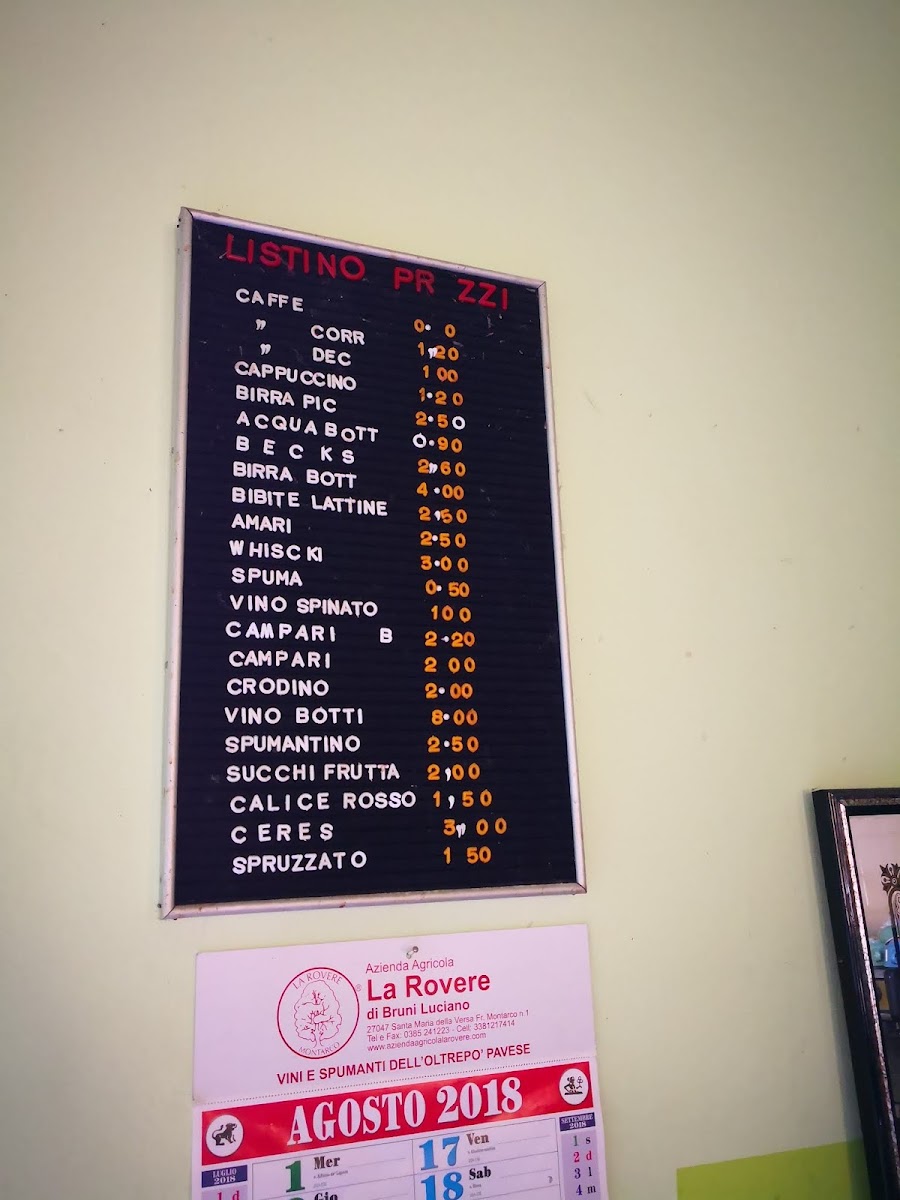 LISTINO PR ZZI
CAFFE 0. 0
" CORR 1,20
" DEC 1 00
CAPPUCCINO 1.20
BIRRA PIC 2.50
ACQUA BOTT 0.90
BECKS 2,60
BIRRA BOTT 4.00
BIBITE LATTINE 2,50
AMARI 2.50
WHISCKI 3.00
SPUMA 0.50
VINO SPINATO 100
CAMPARI B 2.20
CAMPARI 2 00
CRODINO 2.00
VINO BOTTI 8.00
SPUMANTINO 2.50
SUCCHI FRUTTA 2,00
CALICE ROSSO 1,50
CERES 3,00
SPRUZZATO 1 50
LA ROVERE
MONTARCO
Azienda Agricola
La Rovere
®
di Bruni Luciano
27047 Santa Maria della Versa Fr. Montarco n.1
Tel e Fax: 0385 241223 - Cell: 3381217414
www.aziendaagricolalarovere.com
VINI E SPUMANTI DELL'OLTREPO' PAVESE
AGOSTO 2018
LUGLIO 2018
1 d
1 Mer
Gio
17 Ven
18 Sab
SETTEMBRE 2018
1 s
2 d
3 l
4 m